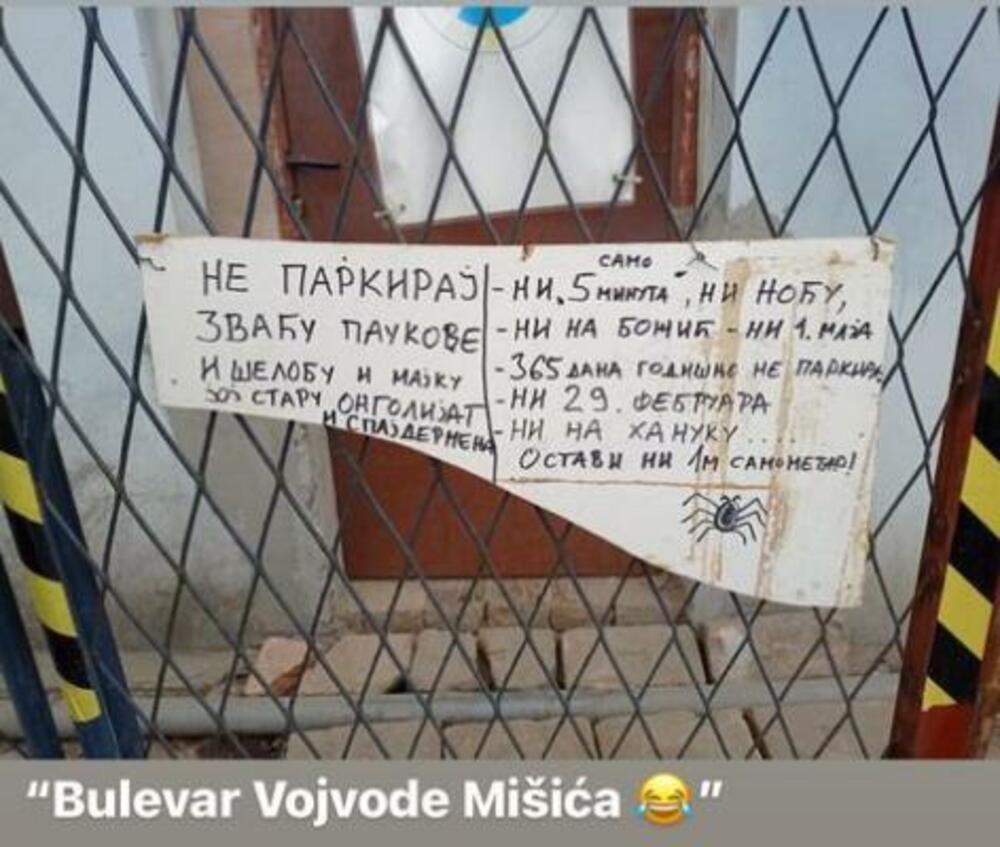 НЕ ПАРКИРАЈ
ЗВАЋУ ПАУКОВЕ
И ШЕЛОБУ И МАЈКУ
ЈОЈ СТАРУ ОНГОЛИЈАТ
И СПАЈДЕРМЕНА
САМО
- НИ „5 МИНУТА“, НИ НОЋУ,
- НИ НА БОЖИЋ - НИ 1. МАЈА
- 365 ДАНА ГОДИШЊЕ НЕ ПАРКИРАЈ
- НИ 29. ФЕБРУАРА
- НИ НА ХАНУКУ....
ОСТАВИ НИ 1М САМОМЕЂАР!
“Bulevar Vojvode Mišića 😂”